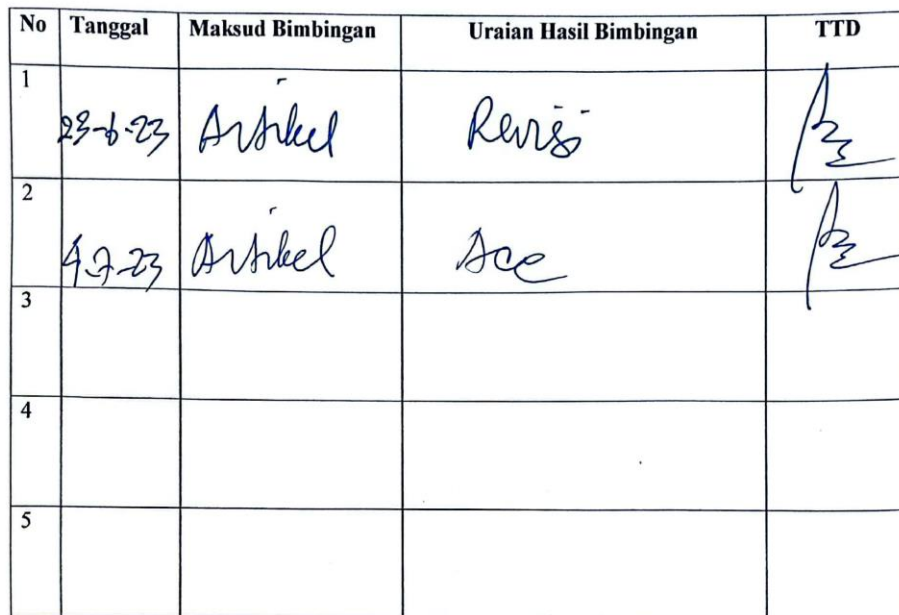 No Tanggal Maksud Bimbingan Uraian Hasil Bimbingan TTD
1
23-6-23 Artikel Revisi
2
4-7-23 Artikel Acc
3
4
5